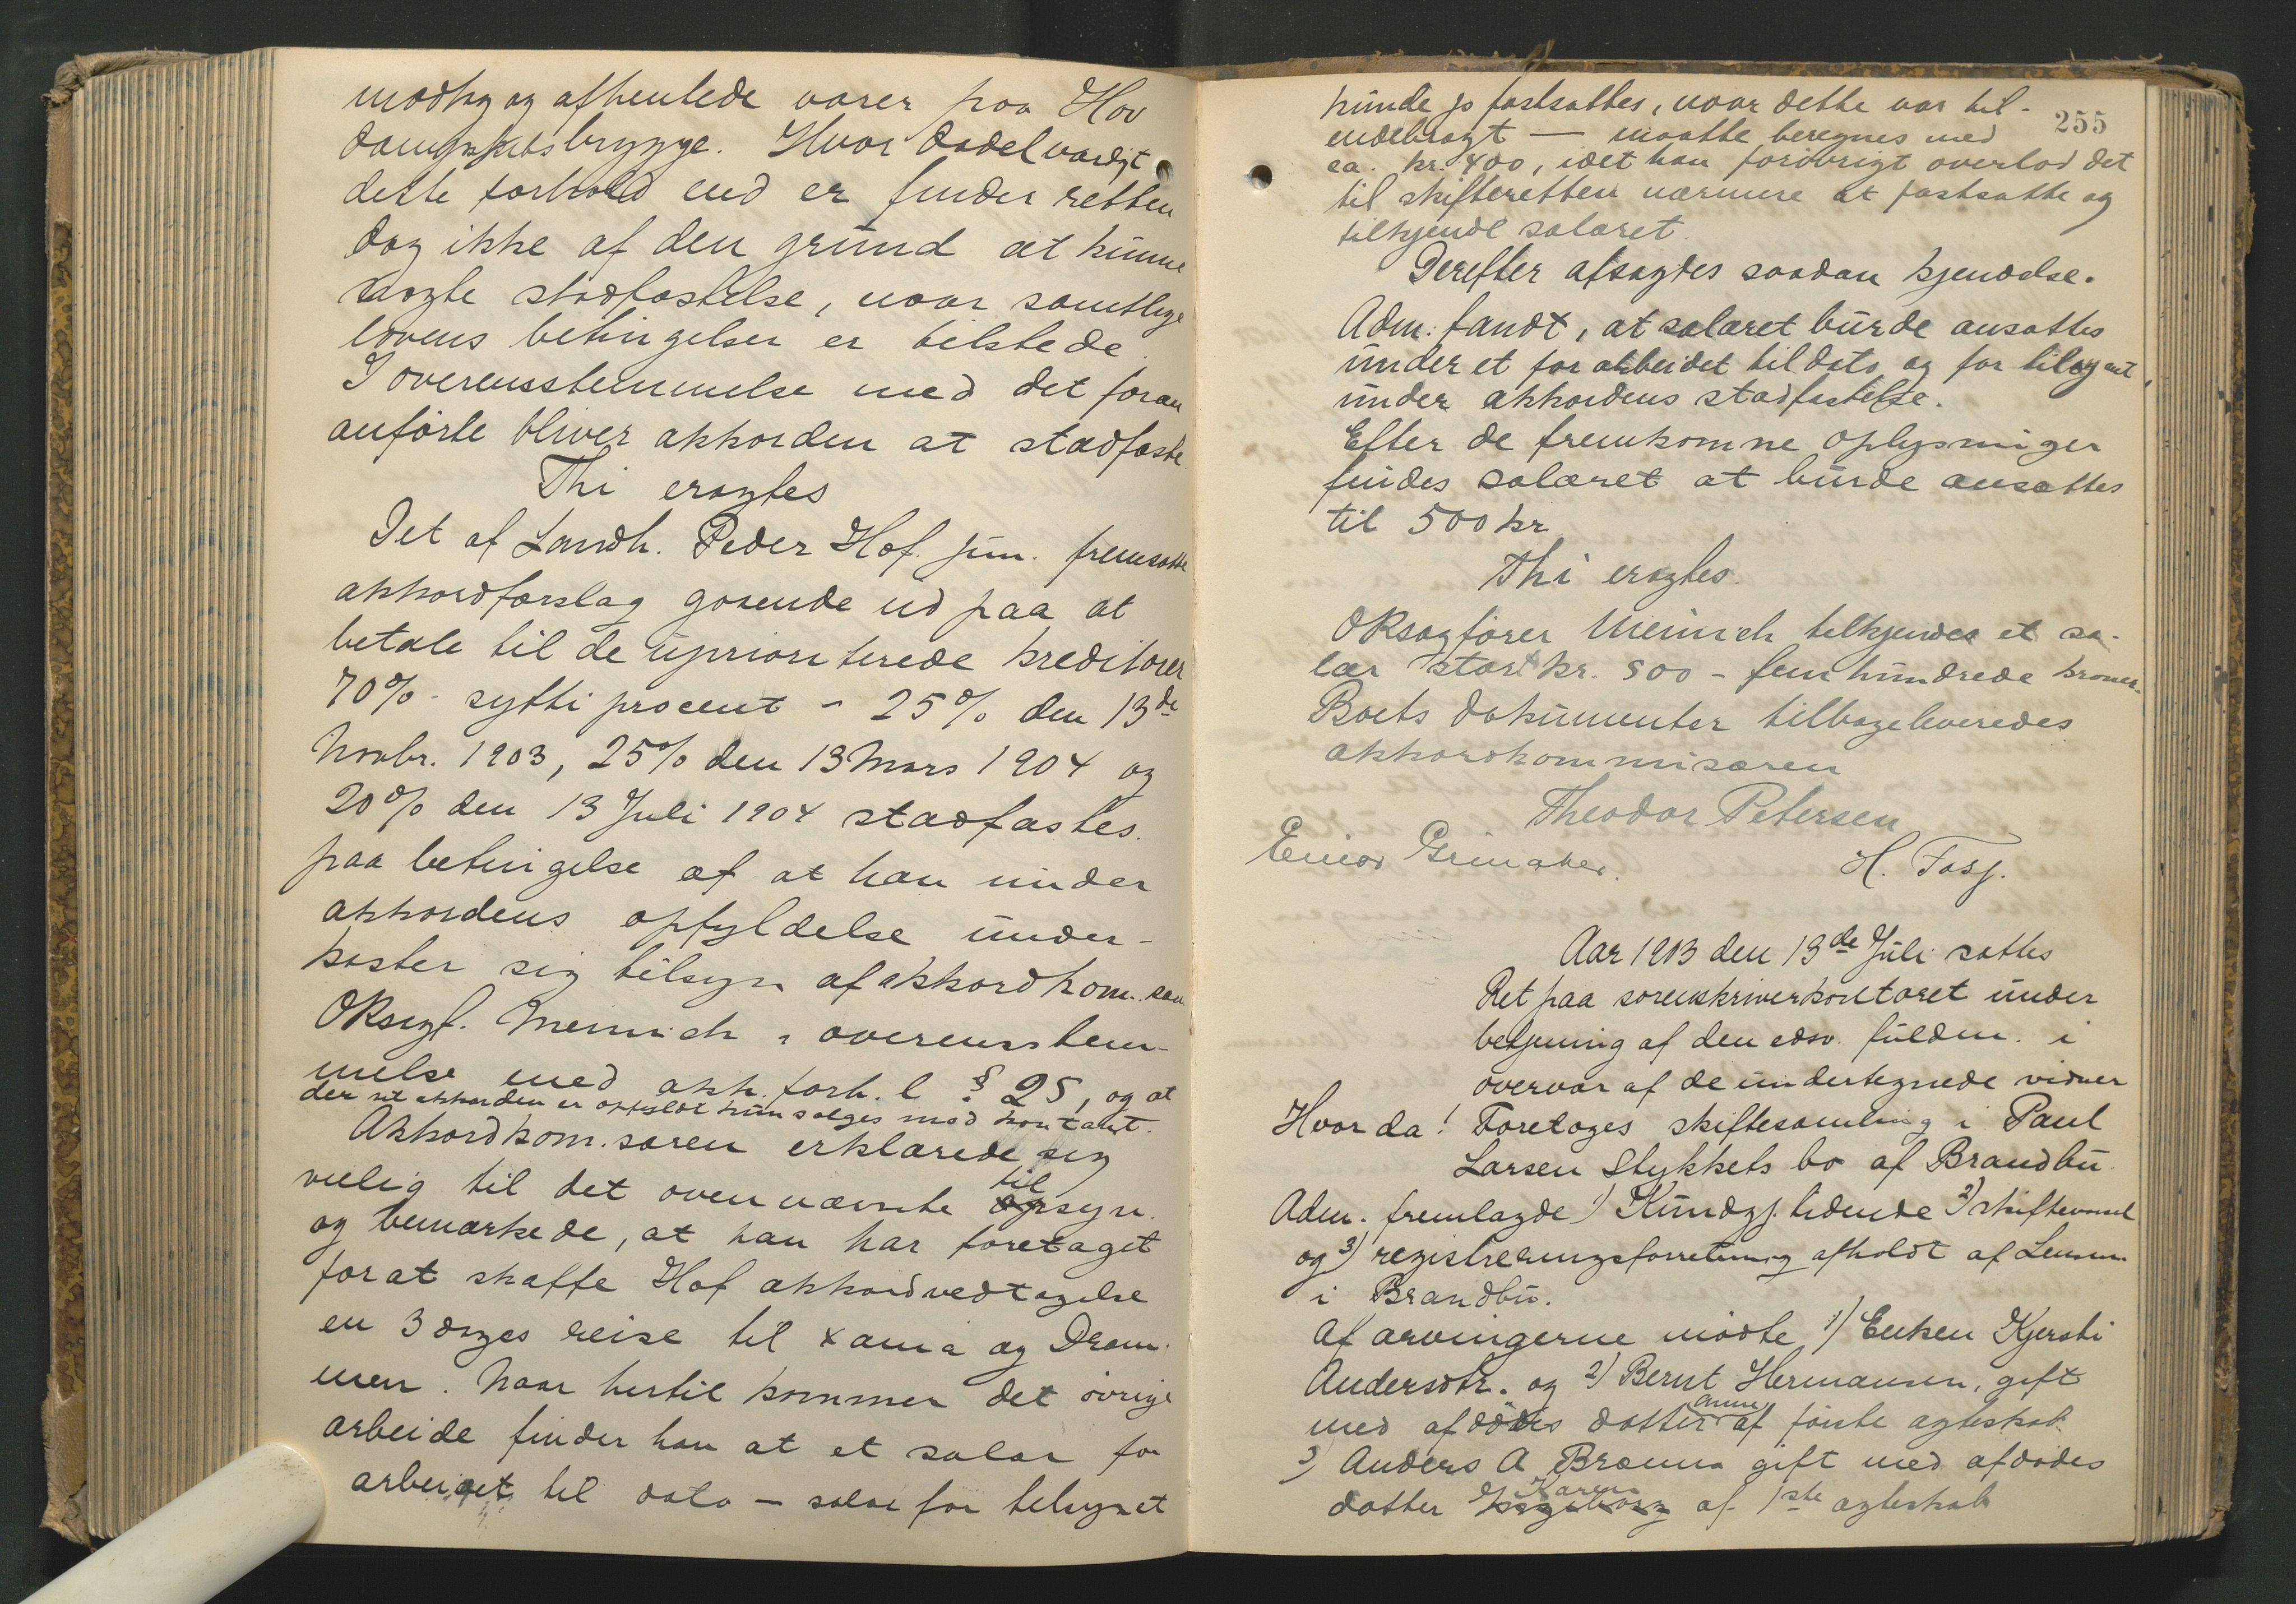 modtog og afhentede varer paa Hov
dampskibsbrygge. Hvor dadelværdigt
dette forhold end er finder retten
dog ikke af den grund at kunne
nægte stadfæstelse, naar samtlige
lovens betingelser er tilstede.
I overensstemmelse med det foran
anförte bliver akkorden at stadfæste
Thi eragtes
Det af Landh. Peder Hof jun. fremsatte
akkordforslag gaaende ud paa at
betale til de upriori terede kreditorer
70% - sytti procent - 25% den 13de
Novbr. 1903, 25% den 13 Mars 1904 og
20% den 13 Juli 1904 stadfæstes.
paa betingelse af at han under
akkordens opfyldelse under-
kaster sig tilsyn af akkordkom.saren
ORsagf. Meinich i overensstem-
melse med akk.forh.l § 25, og at
der til akkorden er opfyldt kun sælges mod kontant.
Akkordkom.saren erklærede sig
villig til det ovennævnte tilsyn
og bemærkede, at han har foretaget
for at skaffe Hof akkordvedtagelse
en 3 dages reise til Xania og Dram-
men. Naar hertil kommer det övrige
arbeide finder han at et salær for
arbeidet til dato - salær for tilsynet
255
kunde jo fastsættes, naar dette var til-
endebragt - maatte beregnes med
ca. kr. 400, idet han forövrigt overlod det
til skifteretten nærmere at fastsætte og
tilkjende salæret.
Derefter afsagdes saadan kjendelse.
Adm. fandt, at salæret burde ansættes
under et for arbeidet til dato og for tilsynet
under akkordens stadfæstelse.
Efter de fremkomne oplysninger
findes salæret at burde ansættes
til 500 kr
Thi eragtes.
ORsagförer Meinich tilkjendes et sa-
lær stort kr. 500 - fem hundrede kroner.
Boets dokumenter tilbageleveredes
akkordkommisæren
Theodor Petersen
Einar Grinaker. H. Fosj.
Aar 1903 den 13de Juli sattes
Ret paa sorenskriverkontoret under
betjening af den edsv. fuldm. i
overvær af de undertegnede vidner
Hvor da! Foretoges skiftesamling i Paul
Larsen Stykkets bo af Brandbu.
Adm. fremlagde 1) Kundgj. tidende 2) skifteanmel
og 3) registreringsforretning afholdt af Lensm.
i Brandbu.
Af arvingerne mödte 1) Enken Kjersti
Andersdtr. og 2) Bernt Hermansen, gift
med afdödes datter Anne af förste ægteskab
3) Anders A Brænna gift med afdödes
datter Karen af 1ste ægteskab